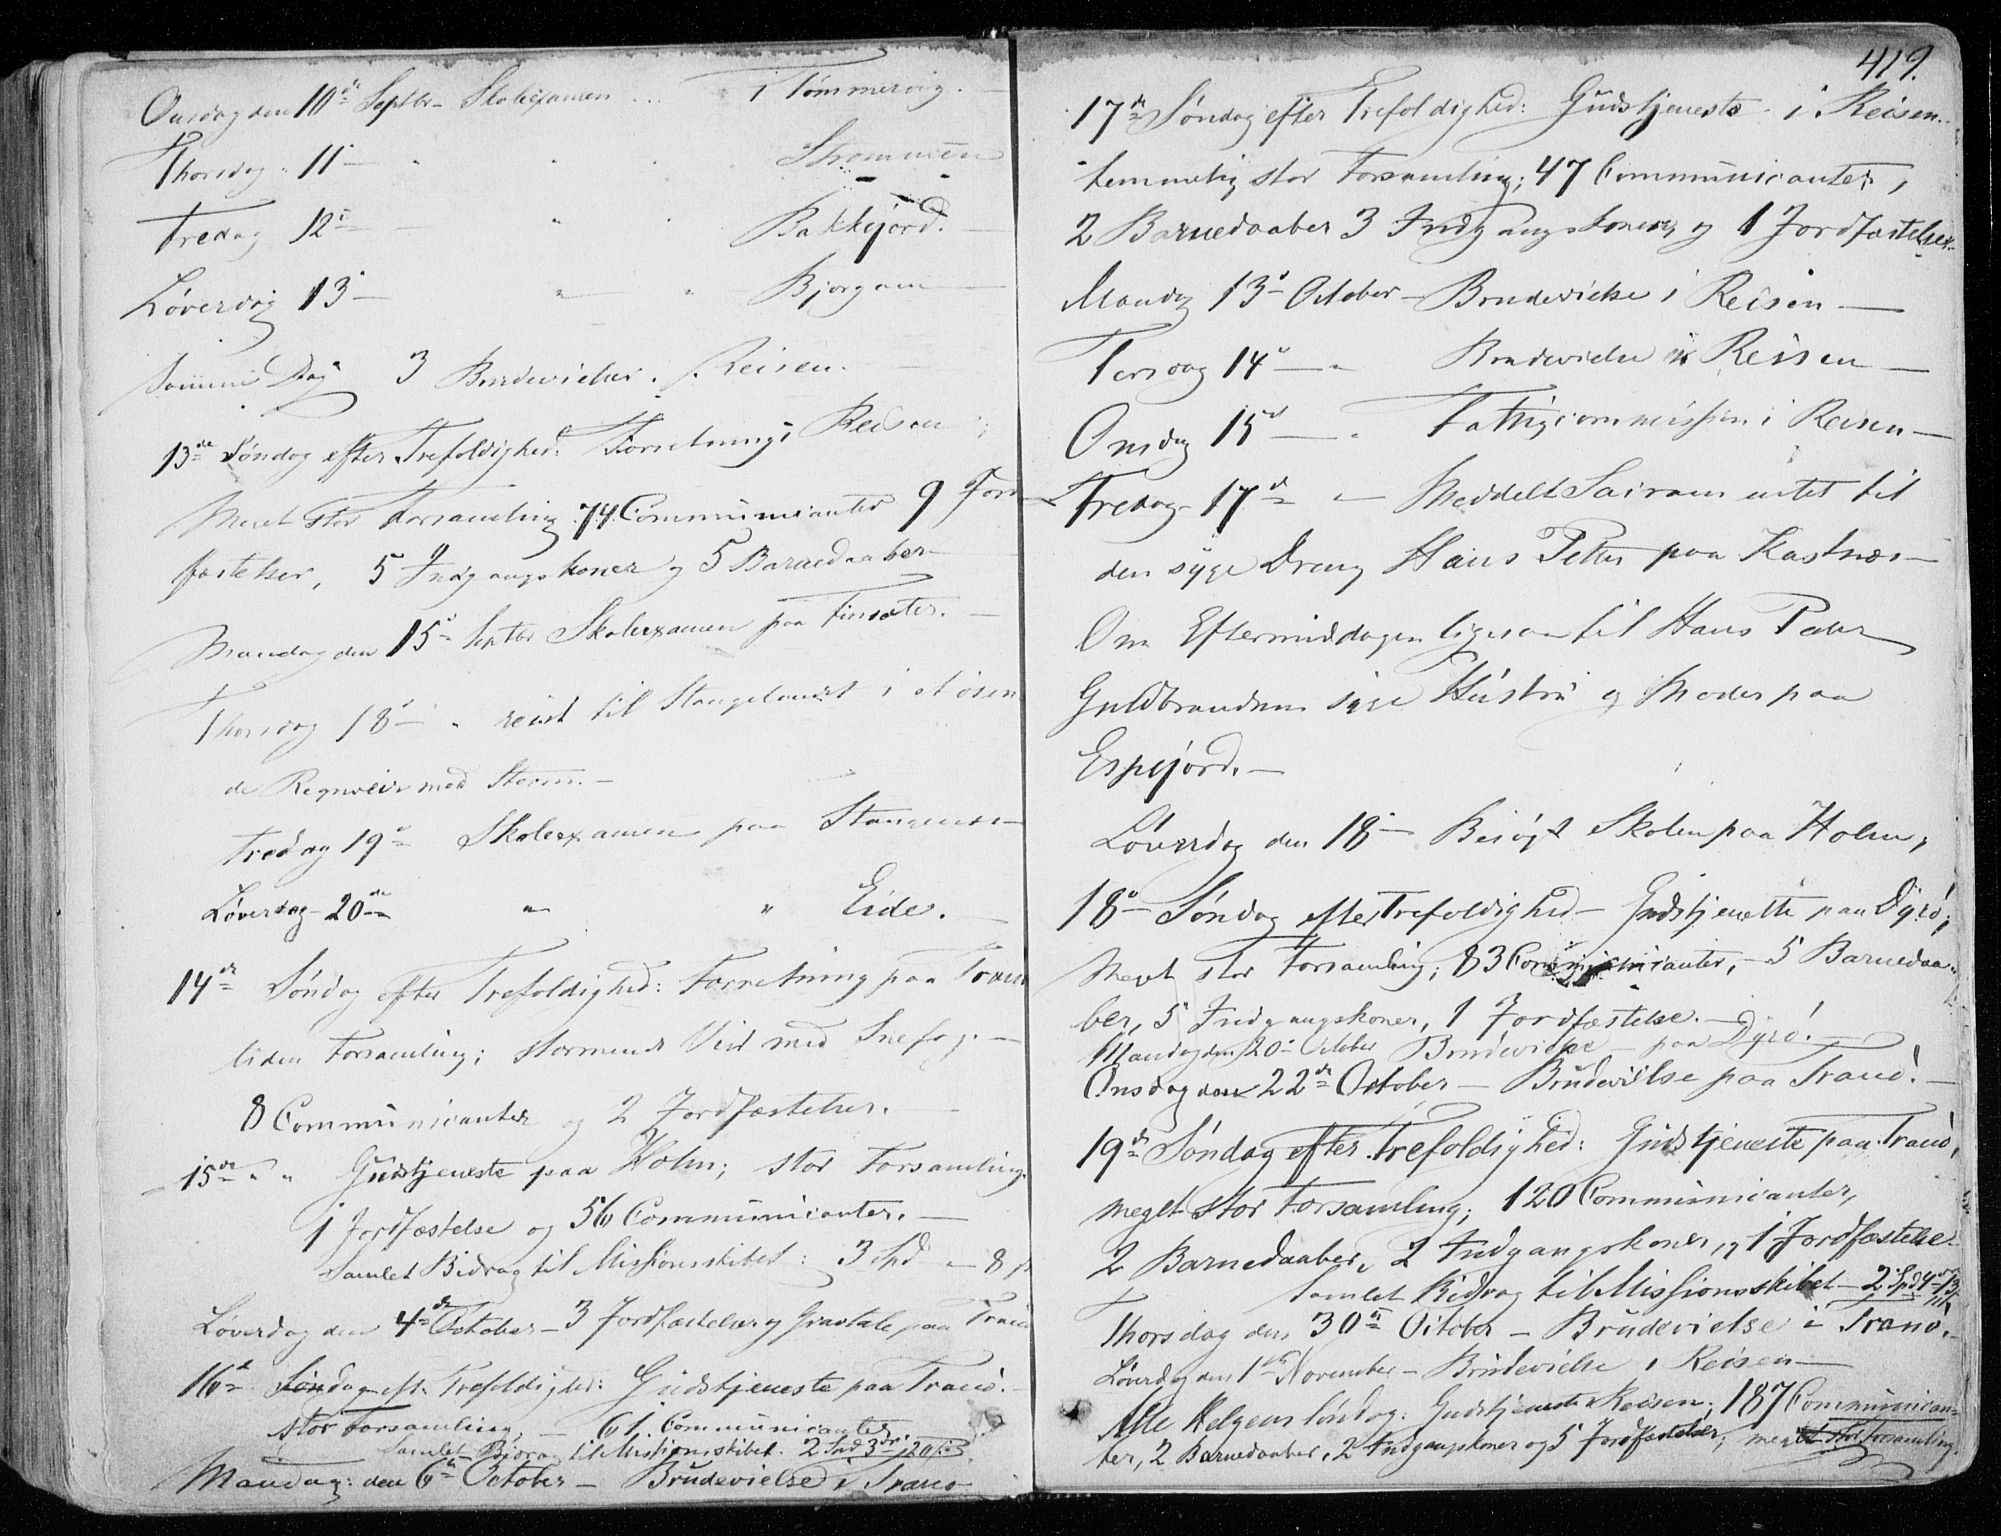 Onsdag den 10de Septbr - Skolexamen ... i Tømmervig. -
Thorsdag 11 - " " Strømmen
Fredag 12 - " " Bakkejord. -
Løverdag 13 - " " Bjorgam -
Samme Dag 3 Brudevielser i Reisen. -
13de Søndag efter Trefoldighed. Forretning i Reisen;
Meget stor Forsamling 74 Communicanter 9 Jord-
fæstelser, 5 Indgangskoner og 5 Barnedaaber -
Mandag den 15de Septbr Skolexamen paa Finsæter. -
Thorsdag 18 - " reist til Stangelandet i øsen
de Regnveir med Storm. -
Fredag 19de Skolexamen paa Stangenes -
Løverdag - 20de " " Eide. -
14de Søndag efter Trefoldighed: Forretning paa Tranø
liden Forsamling; stormende Veir med Snefog. -
8 Communicanter og 2 Jordfæstelser. -
- 15de " " Gudstjeneste paa Holm; stor Forsamling.
1 Jordfæstelse og 56 Communicanter. -
Samlet Bidrag til Missionsskibet: 3 Spd - 8 ß
Løverdag den 4de October - 3 Jordfæstelser og Gravtale paa Tranø
16de Søndag eft. Trefoldighed: Gudstjeneste paa Tranø. -
Stor Forsamling, - 61 Communicanter
Samlet Bidrag til Missionsskibet. 2 Spd 3 20 ß
Mandag: den 6te October - Brudevielse i Tranø
419.
17de Søndag efter Trefoldighed: Gudstjeneste i Reisen.
temmelig stor Forsamling; 47 Communicanter,
2 Barnedaaber 3 Indgangskoner og 1 Jordfæstelse.
Mandag 13de October - Brudevielse i Reisen -
Tirsdag 14de - " Brudevielse i Reisen -
Onsdag 15de - " Fattigcommission i Reisen -
Fredag - 17de " - Meddelt Sacramentet til
den syge Dreng Hans Peter paa Kastnæs -
Om Eftermiddagen ligesaa til Hans Peder
Guldbrandsens syge Hustru og Moder paa
Espejord. -
Løverdag den 18 - Besøgt Skolen paa Holm,
18de Søndag efter Trefoldighed - Gudstjeneste paa Dyrø;
Meget stor Forsamling; 83 Communicanter, - 5 Barnedaa-
ber, 5 Indgangskoner, 1 Jordfæstelse. -
Mandag den 20de October Brudevielse - paa Dyrø. -
Onsdag den 22de October - Brudevielse paa Tranø. -
19de Søndag efter Trefoldighed: Gudstjeneste paa Tranø,
meget stor Forsamling; 120 Communicanter,
2 Barnedaaber, 2 Indgangskoner, og 1 Jordfæstelse.
Samlet Bidrag til Missionsskibet - 2 Spd 4 13 ß
Thorsdag den 30te October - Brudevielse i Tranø. -
Løverdag den 1ste November - Brudevielse i Reisen -
Alle Helgens Søndag: Gudstjeneste i Reisen; 187 Communican-
ter, 2 Barnedaaber, 2 Indgangskoner og 5 Jordfæstelser, meget stor Forsamling.